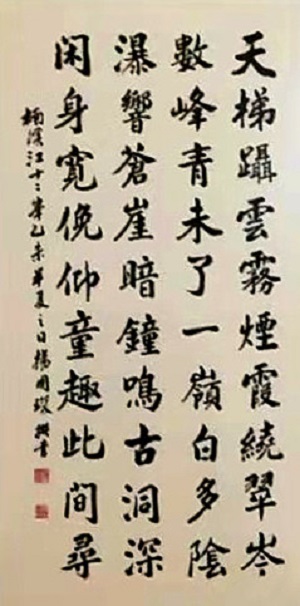 天梯躡雲霧煙霞繞翠岑
數峰青未了一嶺白多陰
瀑響蒼崖暗鐘鳴古洞深
閑身寬俛仰童趣此間尋
楠溪江十二峯乙未華夏之日楊國璨撰書